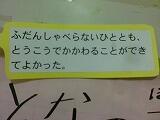 ふだんしゃべらないひととも、
とうこうでかかわることができ
てよかった。